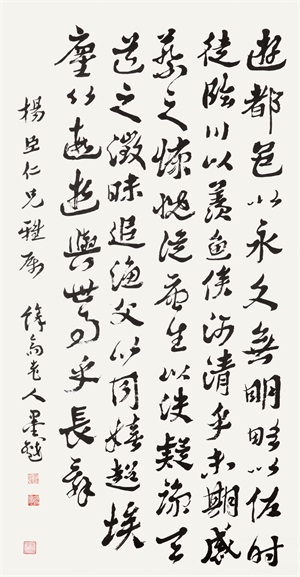 遊都邑以永久無明略以佐時
徒臨川以羨魚俟河清乎未期感
蔡之慷慨從唐生以決疑諒天
道之微昧追漁父以同嬉超埃
塵以遐逝與世事乎長辭
楊臣仁兄雅屬
老人